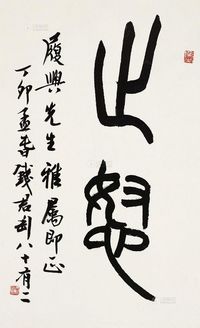 止怒
履興先生雅属即正
丁卯孟春錢君匋八十有二